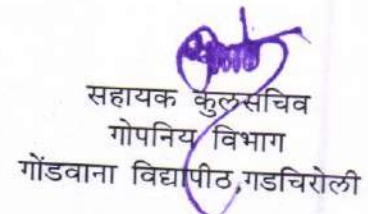 सहायक कुलसचिव
गोपनिय विभाग
गोंडवाना विद्यापीठ,गडचिरोली